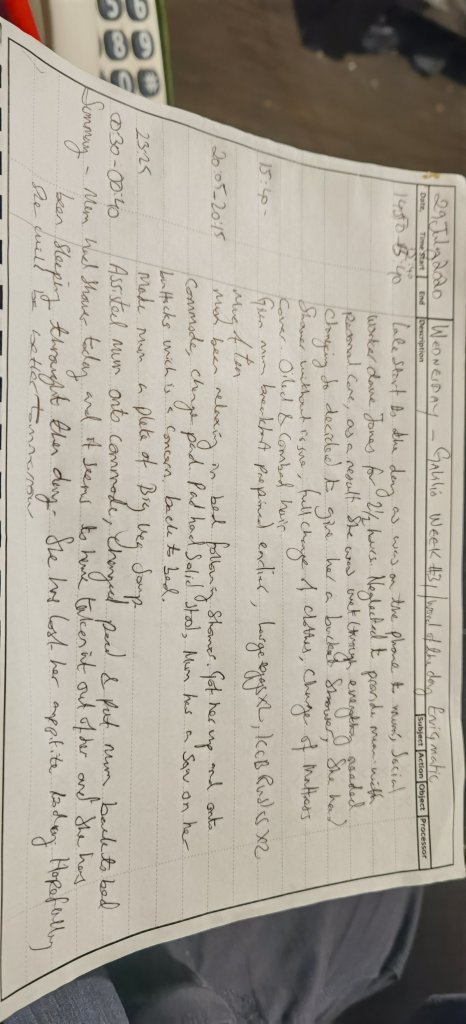 29 July 2020 WEDNESDAY - WEEK #31 word of the day Enigmatic
Date Time Start End Description Subject Action Object Processor
Late start to the day as was on the phone to mums social
worker Jones for 2 1/2 hours. Neglected to provide mum with
personal care, as a result she was wet through everything needed
changing. So decided to give her a bucket shower, she had
shower without issue, full change of clothes, change of mattress
cover. Oiled & combed hair.
15:40 - Given mum breakfast prepared earlier, large eggs x2, Rusks x2
Mug of tea
20:05-20:15 Mum been relaxing in bed following shower. Got her up and onto
commode, change pad. Pad had solid stool, Mum has a sore on her
buttocks which is a concern, back to bed.
23:25 Made mum a plate of Big Veg Soup
00:30-00:40 Assisted Mum onto commode, changed pad & put mum back to bed
Summary - Mum had shower today and it seems to have taken it out of her and she has
been sleeping throughout the day. She has lost her appetite today. Hopefully
she will be better tomorrow
9 6